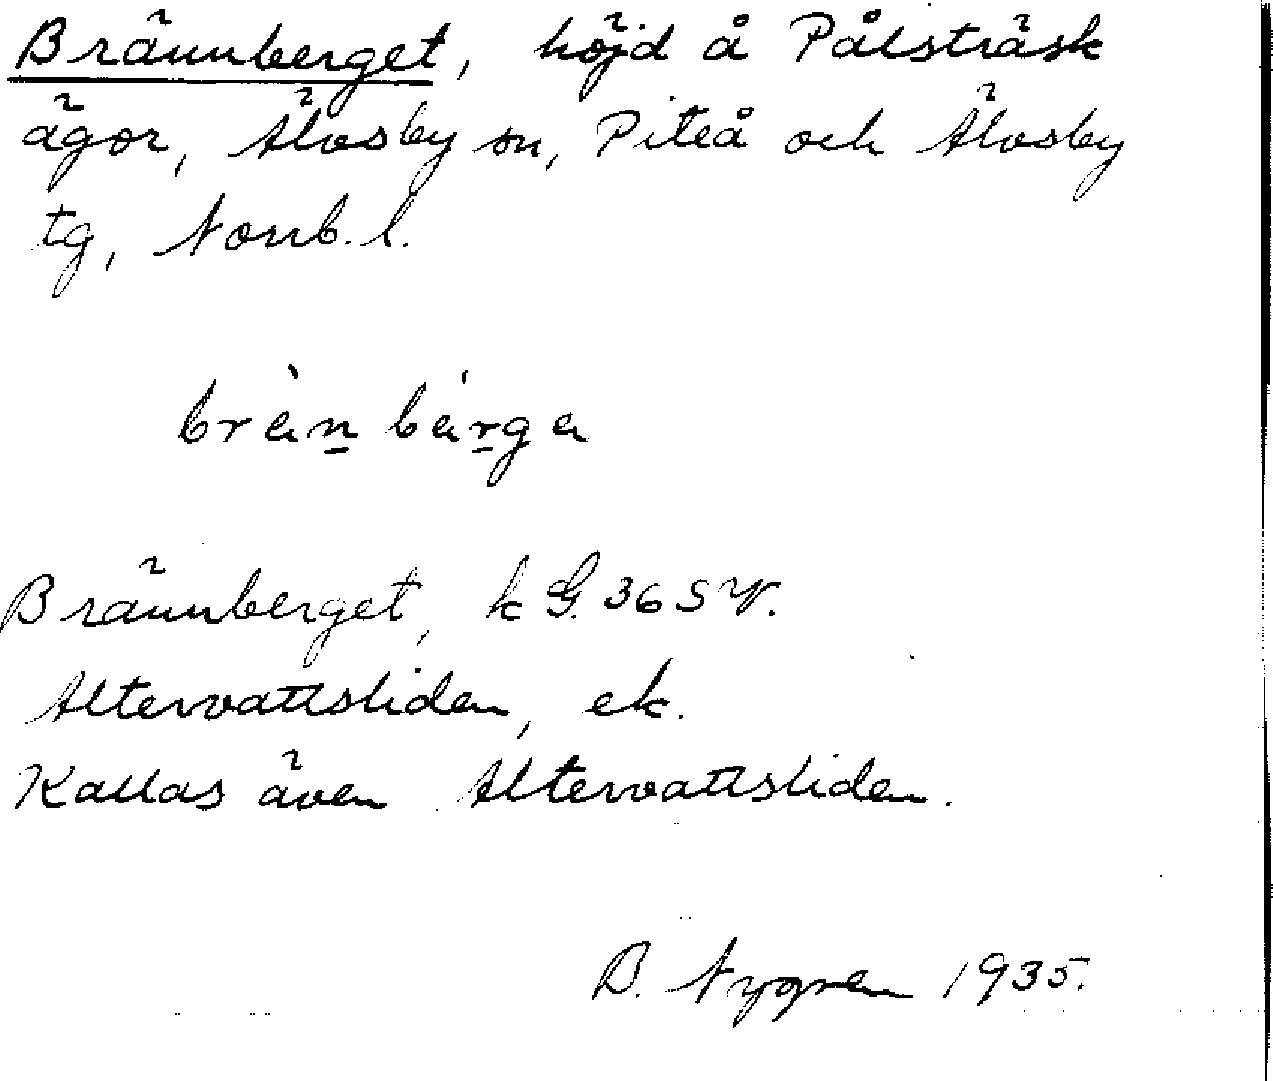 Brännberget, höjd å Pålsträsk
ägor, Älvsby sn, Piteå och Älvsby
tg, Norrb. l.
brèn bárga
Brännberget, k G. 36 SV.
Altervattsliden, ek.
Kallas även Altervattsliden.
B. Nygren 1935.